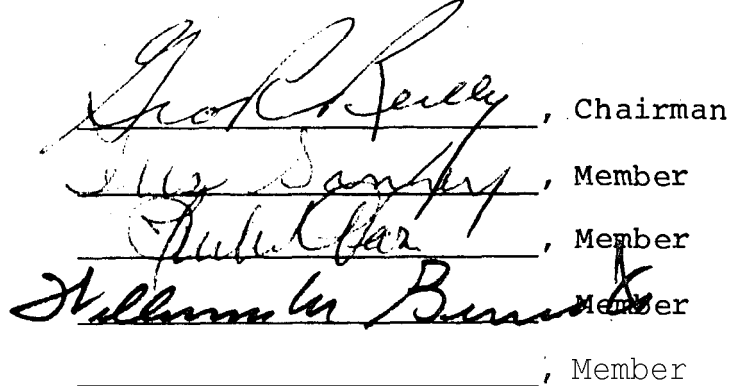 Geo R Reilly, Chairman
, Member
, Member
William M Bennett Member
, Member